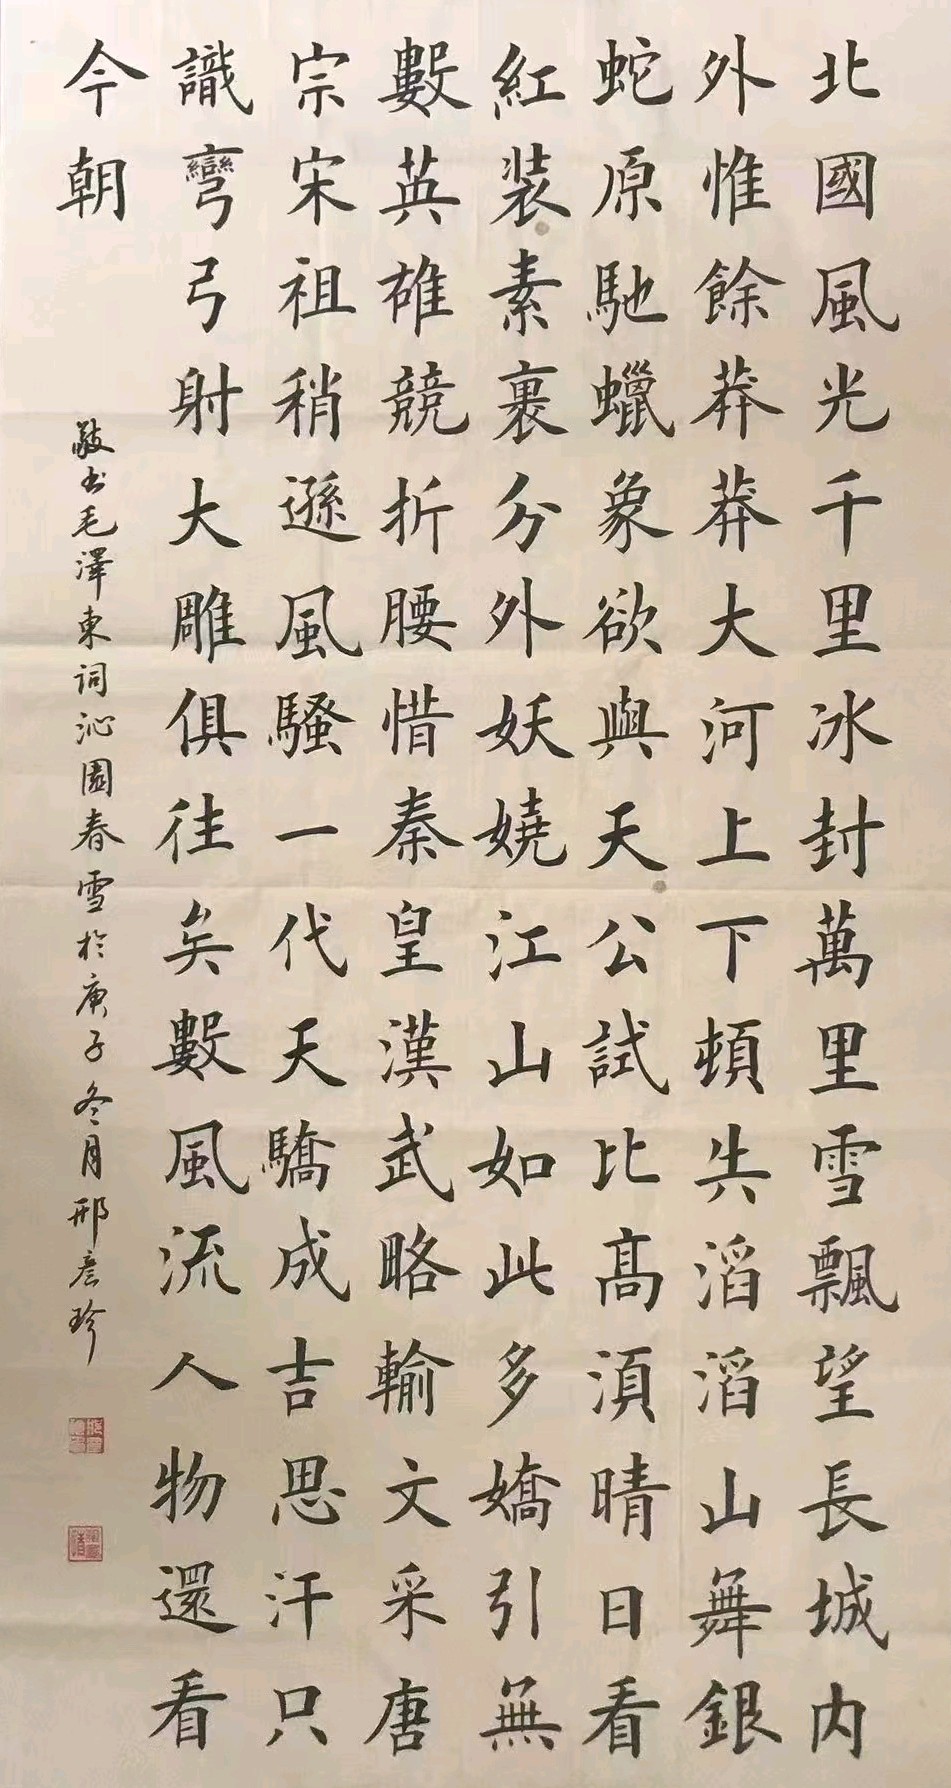 北國風光千里冰封萬里雪飄望長城内
外惟餘莽莽大河上下頓失滔滔山舞銀
蛇原馳蠟象欲與天公試比髙湏晴日看
紅装素裹分外妖嬈江山如此多嬌引無
數英雄競折腰惜秦皇漢武略輸文采唐
宗宋祖稍遜風騷一代天驕成吉思汗只
識彎弓射大雕俱往矣數風流人物還看
今朝
敬书毛澤東詞沁園春雪於庚子冬月邢彦珍